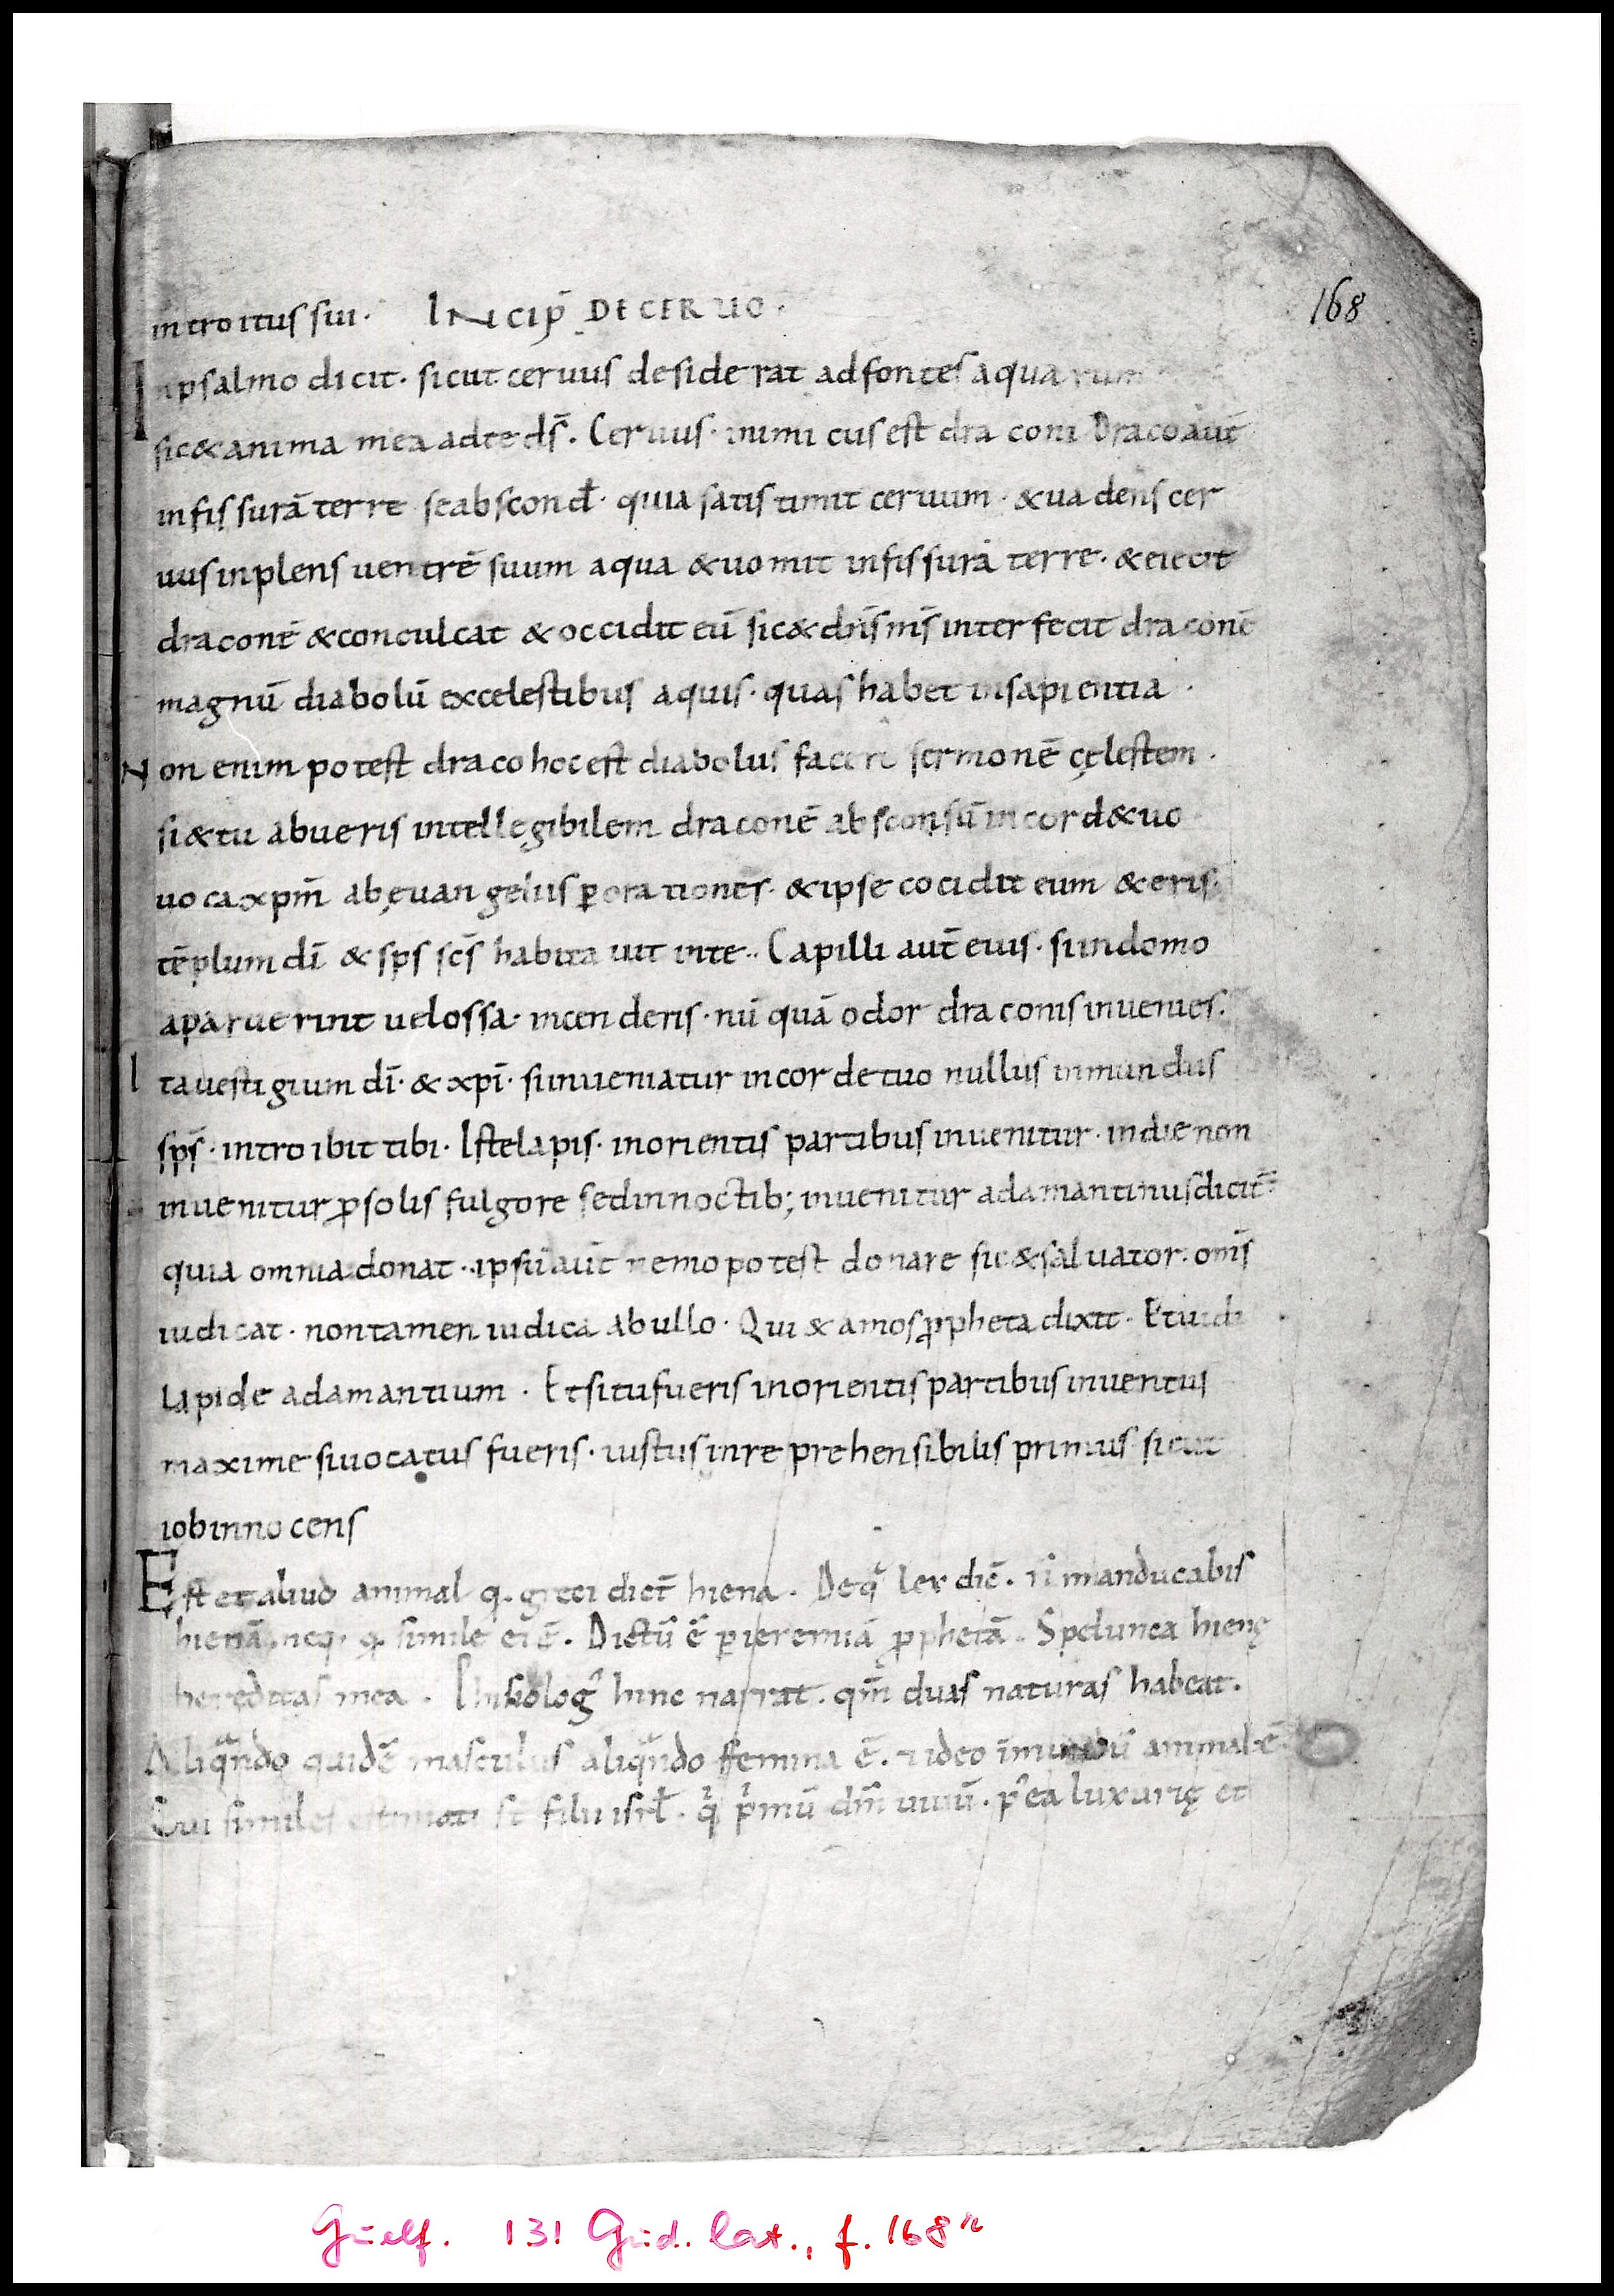 introitus sui· INCIP̄ DE CERUO·
168
In psalmo dicit· sicut ceruus desiderat ad fontes aquarum
sic & anima mea ad te ds̄. Ceruus· inimicus est draconi Draco aūt
in fissurā terre se abscond̄· quia satis timit ceruum· & uadens cer
uus inplens uentrē suum aqua & uomit in fissurā terre· & eiecit
draconē & conculcat & occidit eū sic & dn̄s nīs interfecit draconē
magnū diabolū ex celestibus aquis· quas habet in sapientia·
Non enim potest draco hoc est diabolus facere sermonē cęlestem·
si & tu abueris intellegibilem draconē absconsū in cord& uo
uoca xpm̄ ab euangeliis ꝑ orationes· & ipse cocidit eum & eris·
tēplum dī & sps̄ scs̄ habitauit in te·· Capilli aūt eius· sundomo
aparuerint uel ossa· incenderis· nū quā odor draconis inuenies.
Ita uestigium dī· & xpī· si inueniatur in corde tuo nullus inmundus
sps̄· introibit tibi· Iste lapis· in orientis partibus inuenitur· in die non
inuenitur ꝓ solis fulgore sed in noctib; inuenitur adamantinus dicit̄·
quia omnia donat· ipsū aūt nemo potest donare sic & saluator· om̄s
iudicat· non tamen iudica ab ullo· Qui & amos ꝓpheta dixit· Et uidi
lapide adamantium· Et si tu fueris in orientis partibus inuentus
maxime si uocatus fueris· iustus inreprehensibilis primus sicut
iob innocens
Est et aliud animal q· greci dict̄ hiena· De qͣ lex dic̄· n̄ manducabis
hienā neq· q simile ei ē· Dictū ē ꝑ ieremiā ꝓphetā· Spelunca hienę
hereditas mea· Phisiologꝰ hinc narrat· qm̄ duas naturas habeat·
Aliqͣndo quidē masculus aliqͣndo femina ē· ⁊ ideo īmundū animal ē
Cui similes estimati st̄ filii isrł· qͥ pͥmū dm̄ uiuū· pꝰea luxurię et
Guelf. 131 Gud. lat., f. 168r